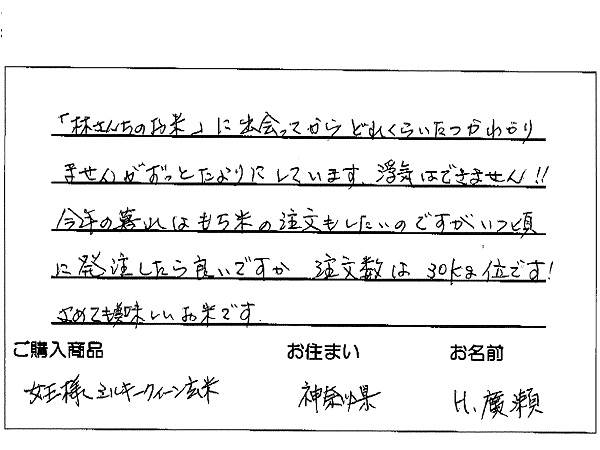 「林さんちのお米」に出会ってからどれくらいたつかわかり
ませんがずっとたよりにしています。浮気はできません!!
今年の暮れはもち米の注文もしたいのですがいつ頃
に発注したら良いですか 注文数は30kg位です!
さめても美味しいお米です。
ご購入商品 お住まい お名前
女王様 ミルキークィーン玄米 神奈川県 H.廣瀬